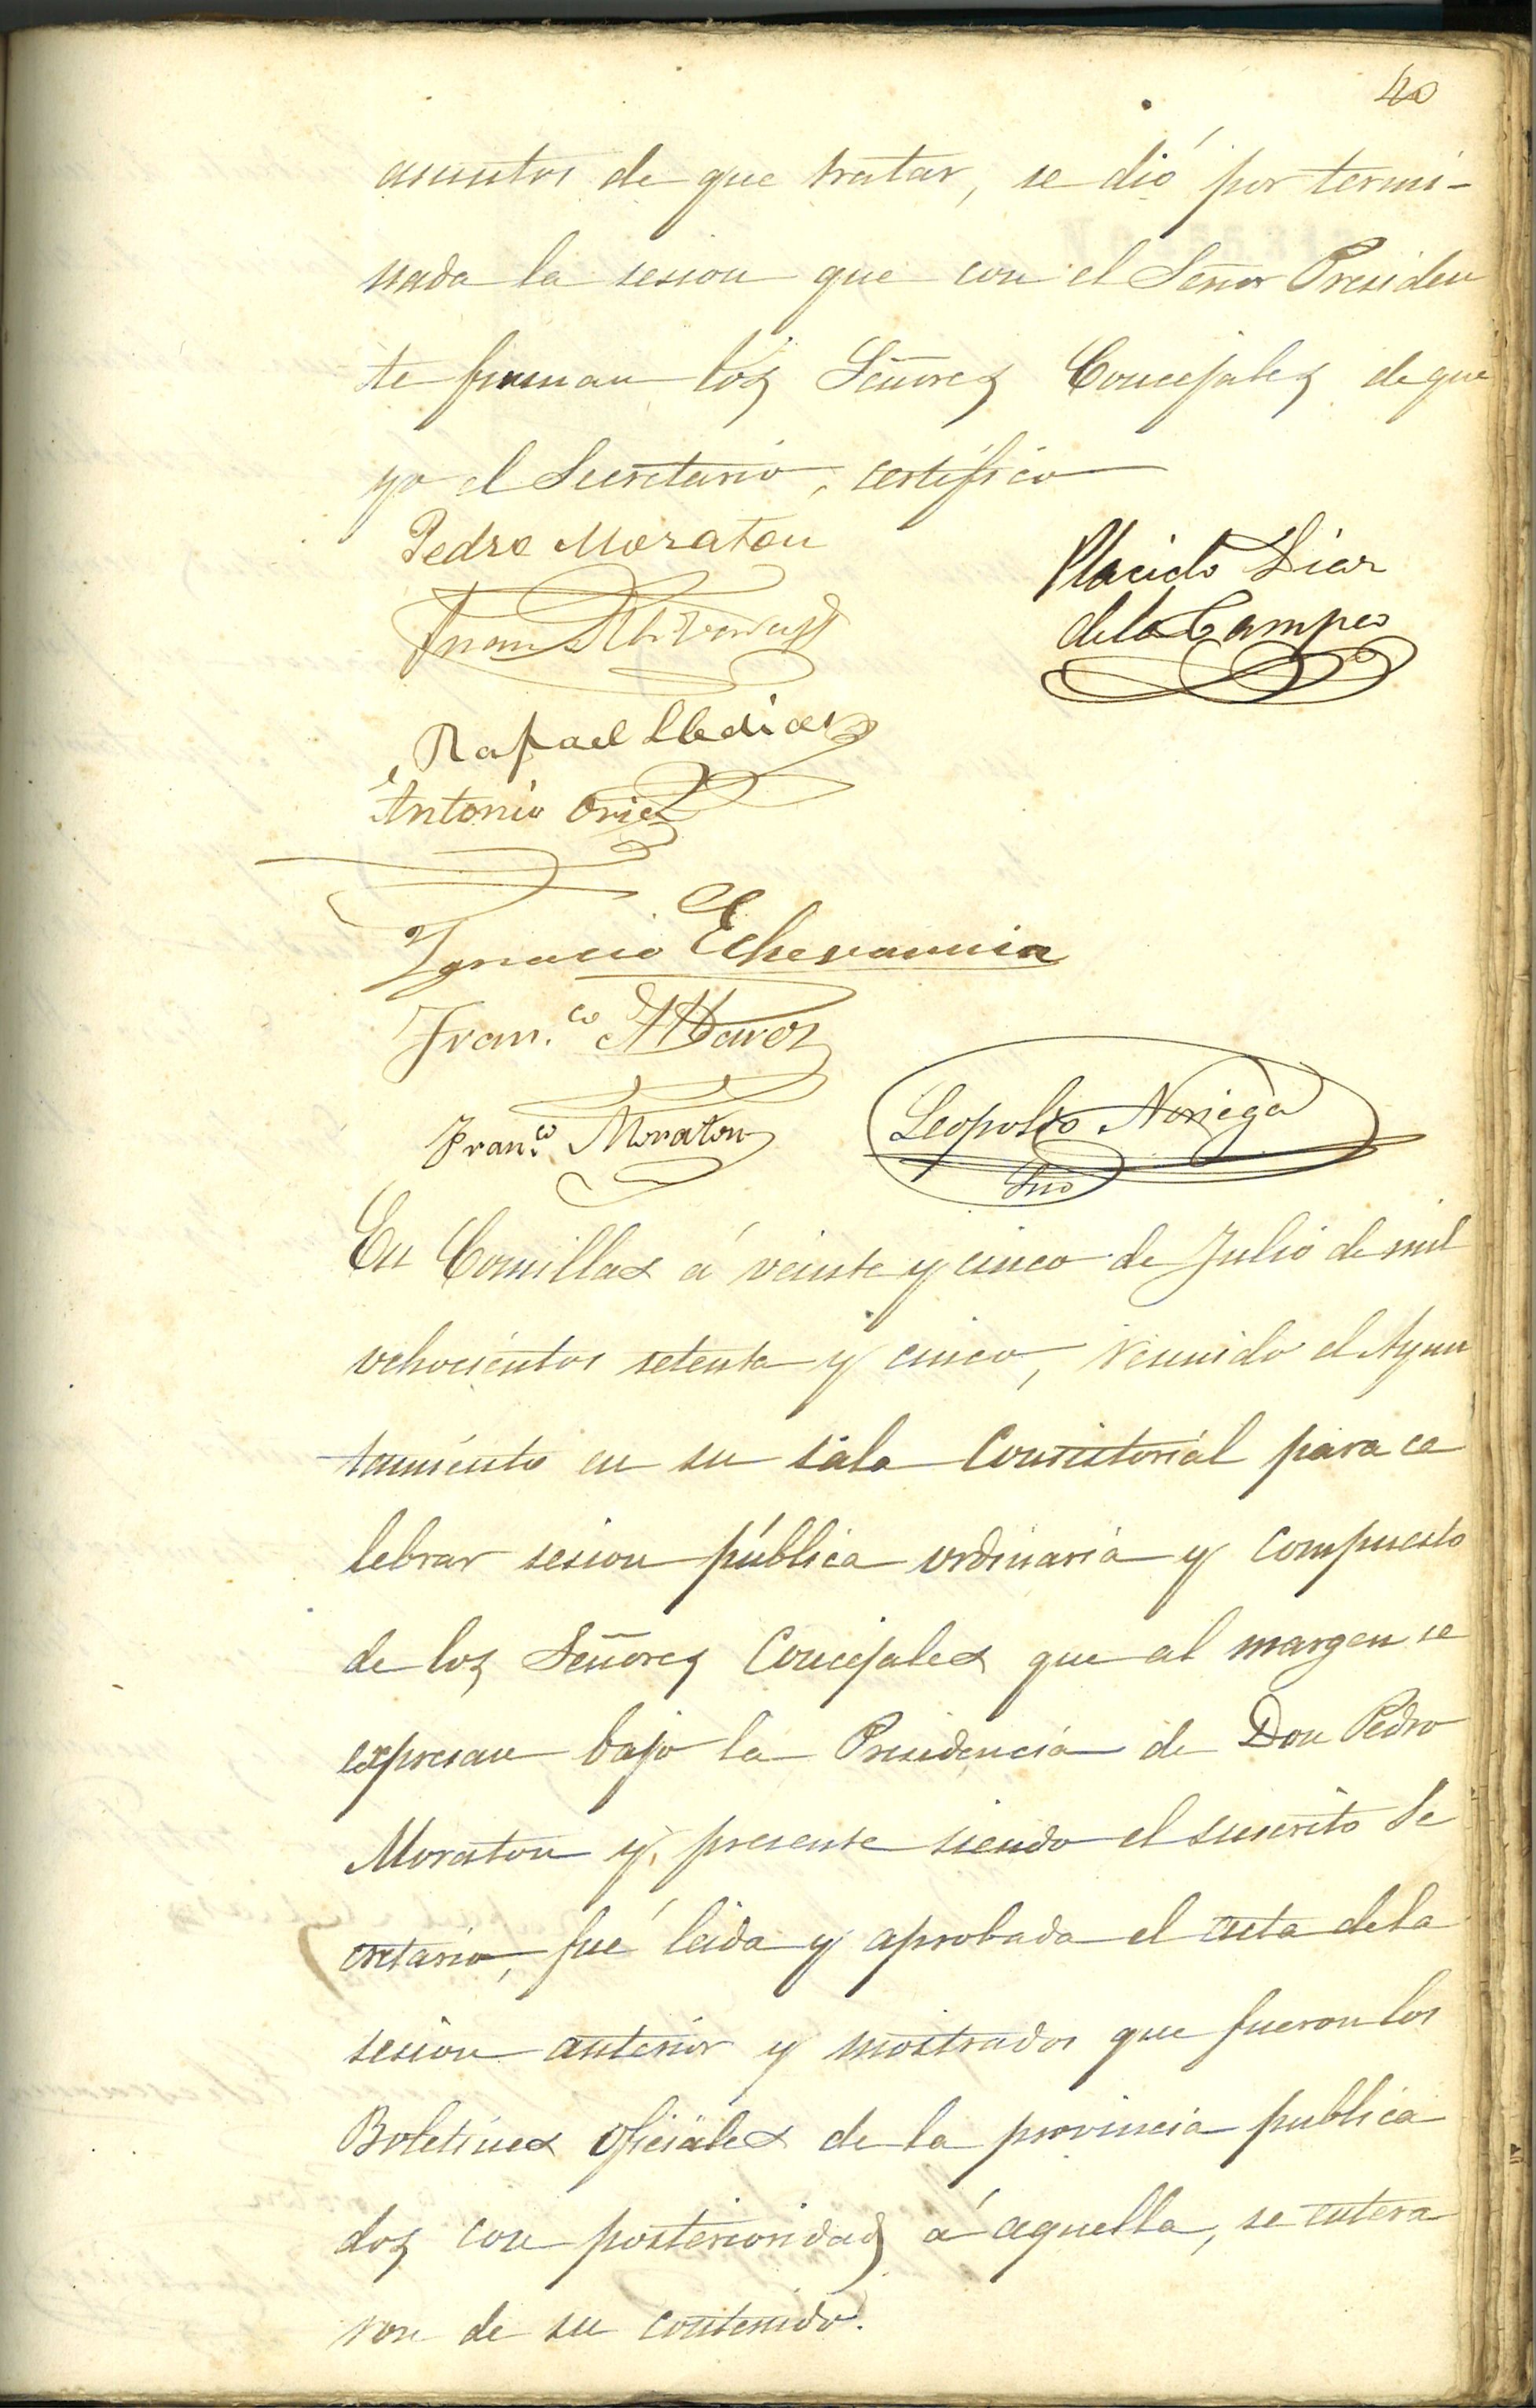 40
asuntos de que tratar, se dió por termi-
nada la sesion que con el Señor Presiden
te firman los Señores Concejales de que
yo el Secretario, certifico
Pedro Moraton
Placido Diaz
de la Campa
Juan
Rafael
Antonio
Ygnacio Echevarria
Fran.co
Fran.co Moraton
Leopoldo Noriega
Srio
En Comillas á veinte y cinco de Julio de mil
ochocientos setenta y cinco, reunido el Ayun
tamiento en su sala Consistorial para ce
lebrar sesion pública ordinaria y compuesto
de los Señores Concejales que al margen se
expresan bajo la Presidencia de Don Pedro
Moraton y, presente siendo el suscrito Se
cretario, fué leida y aprobada el acta de la
sesion anterior y mostrados que fueron los
Boletines oficiales de la provincia publica
dos con posterioridad á aquella, se entera
ron de su contenido.